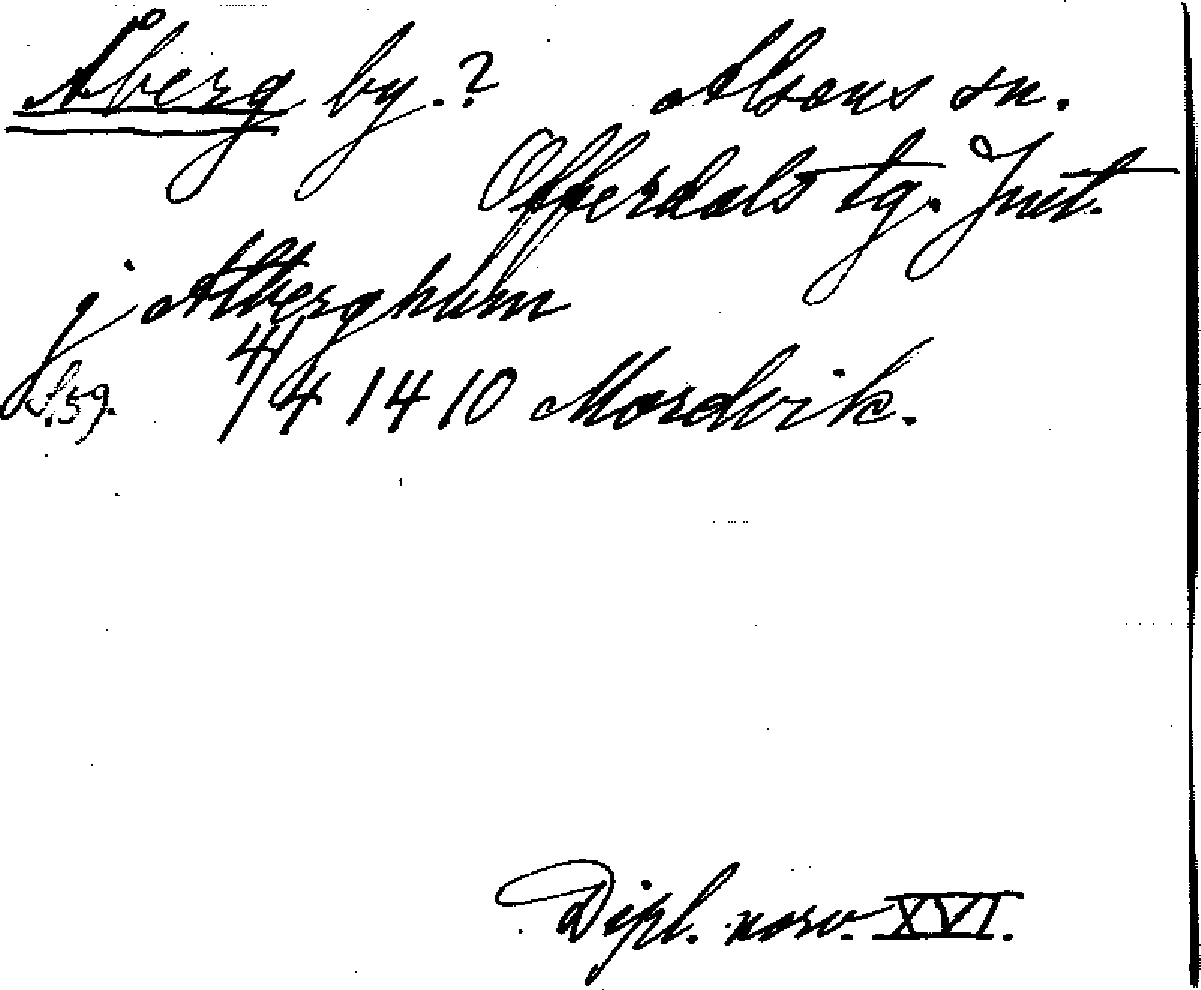 Åberg by.? Alsens sn.
Offerdals tg. Jmt.
j Atberghum
s. 59. 4/4 1410 Mordvik.
Dipl. norv. XVI.